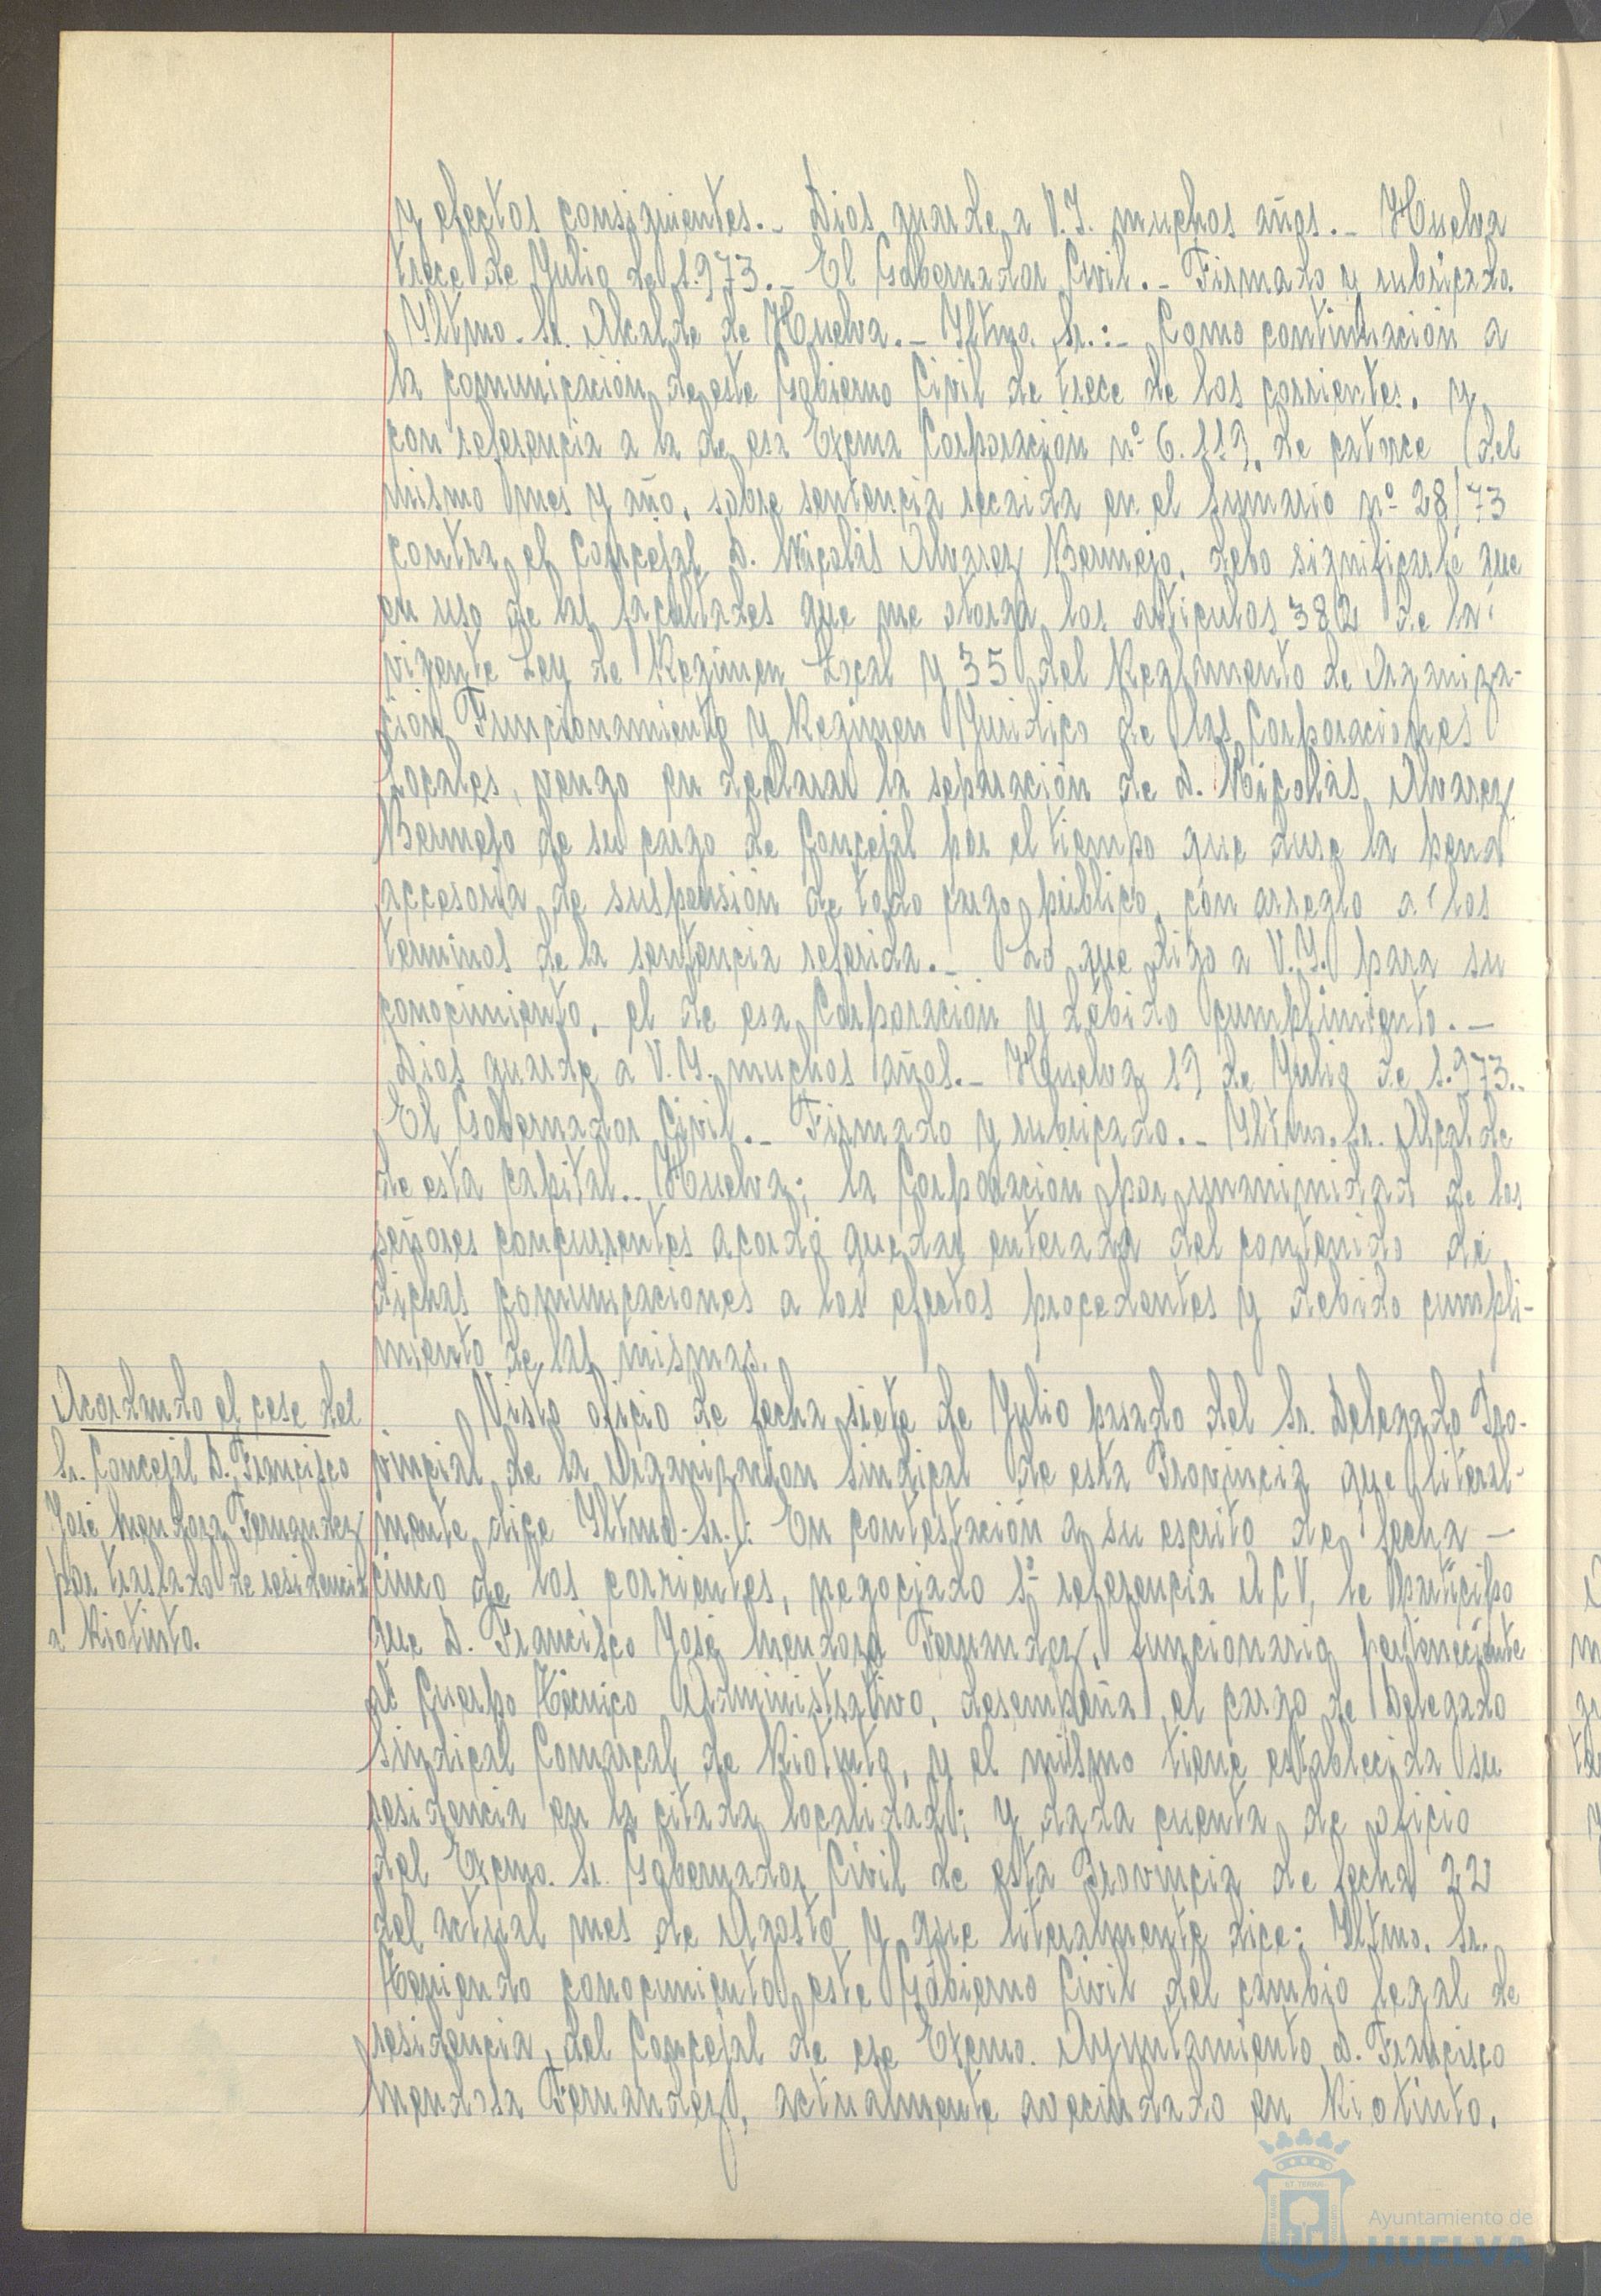 y efectos consiguientes.- Dios guarde a V.I. muchos años.- Huelva
trece de Julio de 1.973.- El Gobernador Civil.- Firmado y rubricado.
Yltmo. Sr. Alcalde de Huelva.- Yltmo. Sr.:- Como continuación a
la comunicación de este Gobierno Civil de trece de los corrientes, y
con referencia a la de esa Excma Corporación nº 6.119, de catorce del
mismo mes y año, sobre sentencia recaida en el sumario nº 28/73
contra el Concejal D. Nicolás Alvarez Bermejo, debo significarle que
en uso de las facultades que me otorga los articulos 382 de la
vigente Ley de Regimen Local y 35 del Reglamento de Organiza-
ción Funcionamiento y Regimen Juridico de las Corporaciones
Locales, vengo en declarar la separación de D. Nicolás Alvarez
Bermejo de su cargo de Concejal por el tiempo que dure la pena
accesoria de suspensión de todo cargo público, con arreglo a los
terminos de la sentencia referida.- Lo que digo a V.I. para su
conocimiento, el de esa Corporación y debido cumplimiento.-
Dios guarde a V.I. muchos años.- Huelva 19 de Julio de 1.973.-
El Gobernador Civil.- Firmado y rubricado.- Yltmo. Sr. Alcalde
de esta capital.. Huelva; la Corporación por unanimidad de los
señores concurrentes acordó quedar enterada del contenido de
dichas comunicaciones a los efectos procedentes y debido cumpli-
miento de las mismas.
Acordando el cese del
Sr. Concejal D. Francisco
José Mendoza Fernandez
por traslado de residencia
a Riotinto.
Visto oficio de fecha siete de Julio pasado del Sr. Delegado Pro-
vincial de la Organización Sindical de esta Provincia que literal-
mente dice Yltmo. Sr.: En contestación a su escrito de fecha -
cinco de los corrientes, negociado 1º referencia ACV, le participo
que D. Francisco José Mendoza Fernandez, funcionario perteneciente
al Cuerpo Técnico Administrativo, desempeña el cargo de Delegado
Sindical Comarcal de Riotinto, y el mismo tiene establecida su
residencia en la citada localidad; y dada cuenta de oficio
del Excmo. Sr. Gobernador Civil de esta Provincia de fecha 22
del actual mes de Agosto y que literalmente dice: Yltmo. Sr.
Teniendo conocimiento este Gobierno Civil del cambio legal de
residencia del Concejal de ese Excmo. Ayuntamiento D. Francisco
Mendoza Fernandez, actualmente avecindado en Riotinto,
Ayuntamiento de
HUELVA